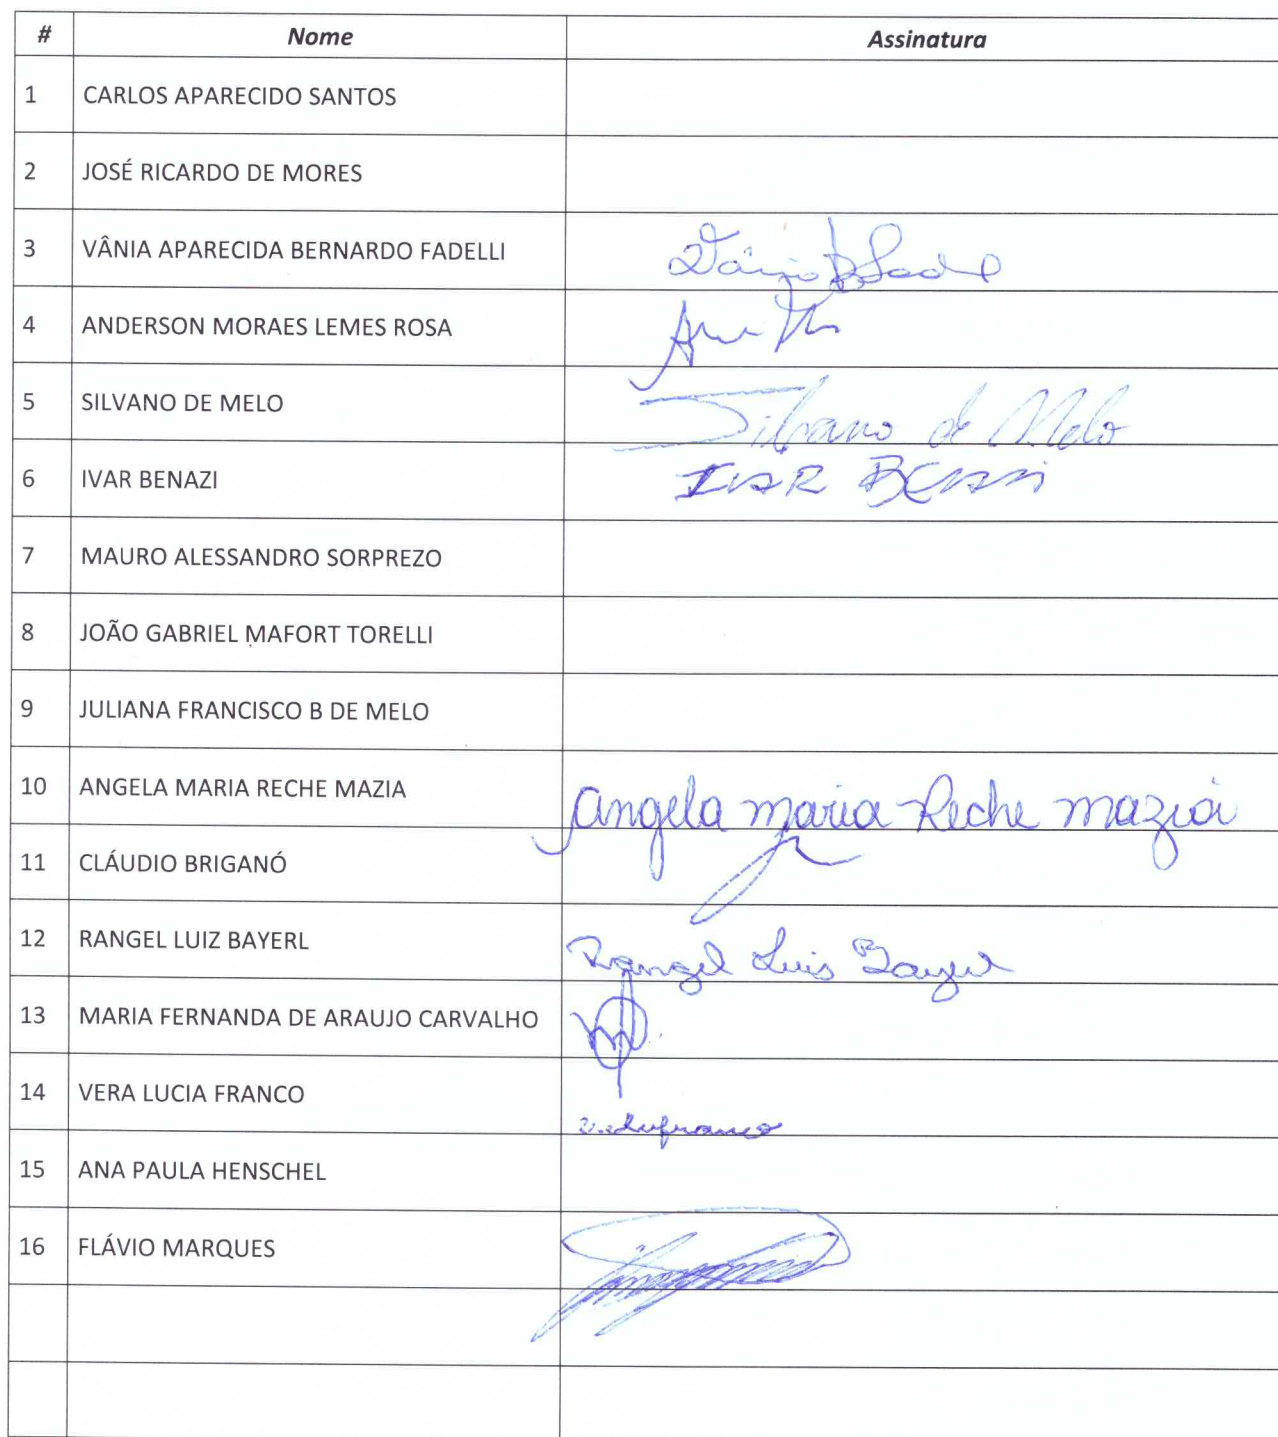 # Nome Assinatura
1 CARLOS APARECIDO SANTOS
2 JOSÉ RICARDO DE MORES
3 VÂNIA APARECIDA BERNARDO FADELLI
4 ANDERSON MORAES LEMES ROSA
5 SILVANO DE MELO Silvano de Melo
6 IVAR BENAZI IVAR
7 MAURO ALESSANDRO SORPREZO
8 JOÃO GABRIEL MAFORT TORELLI
9 JULIANA FRANCISCO B DE MELO
10 ANGELA MARIA RECHE MAZIA Angela maria Reche mazia
11 CLÁUDIO BRIGANÓ
12 RANGEL LUIZ BAYERL Rangel Luis Bayerl
13 MARIA FERNANDA DE ARAUJO CARVALHO
14 VERA LUCIA FRANCO
15 ANA PAULA HENSCHEL
16 FLÁVIO MARQUES